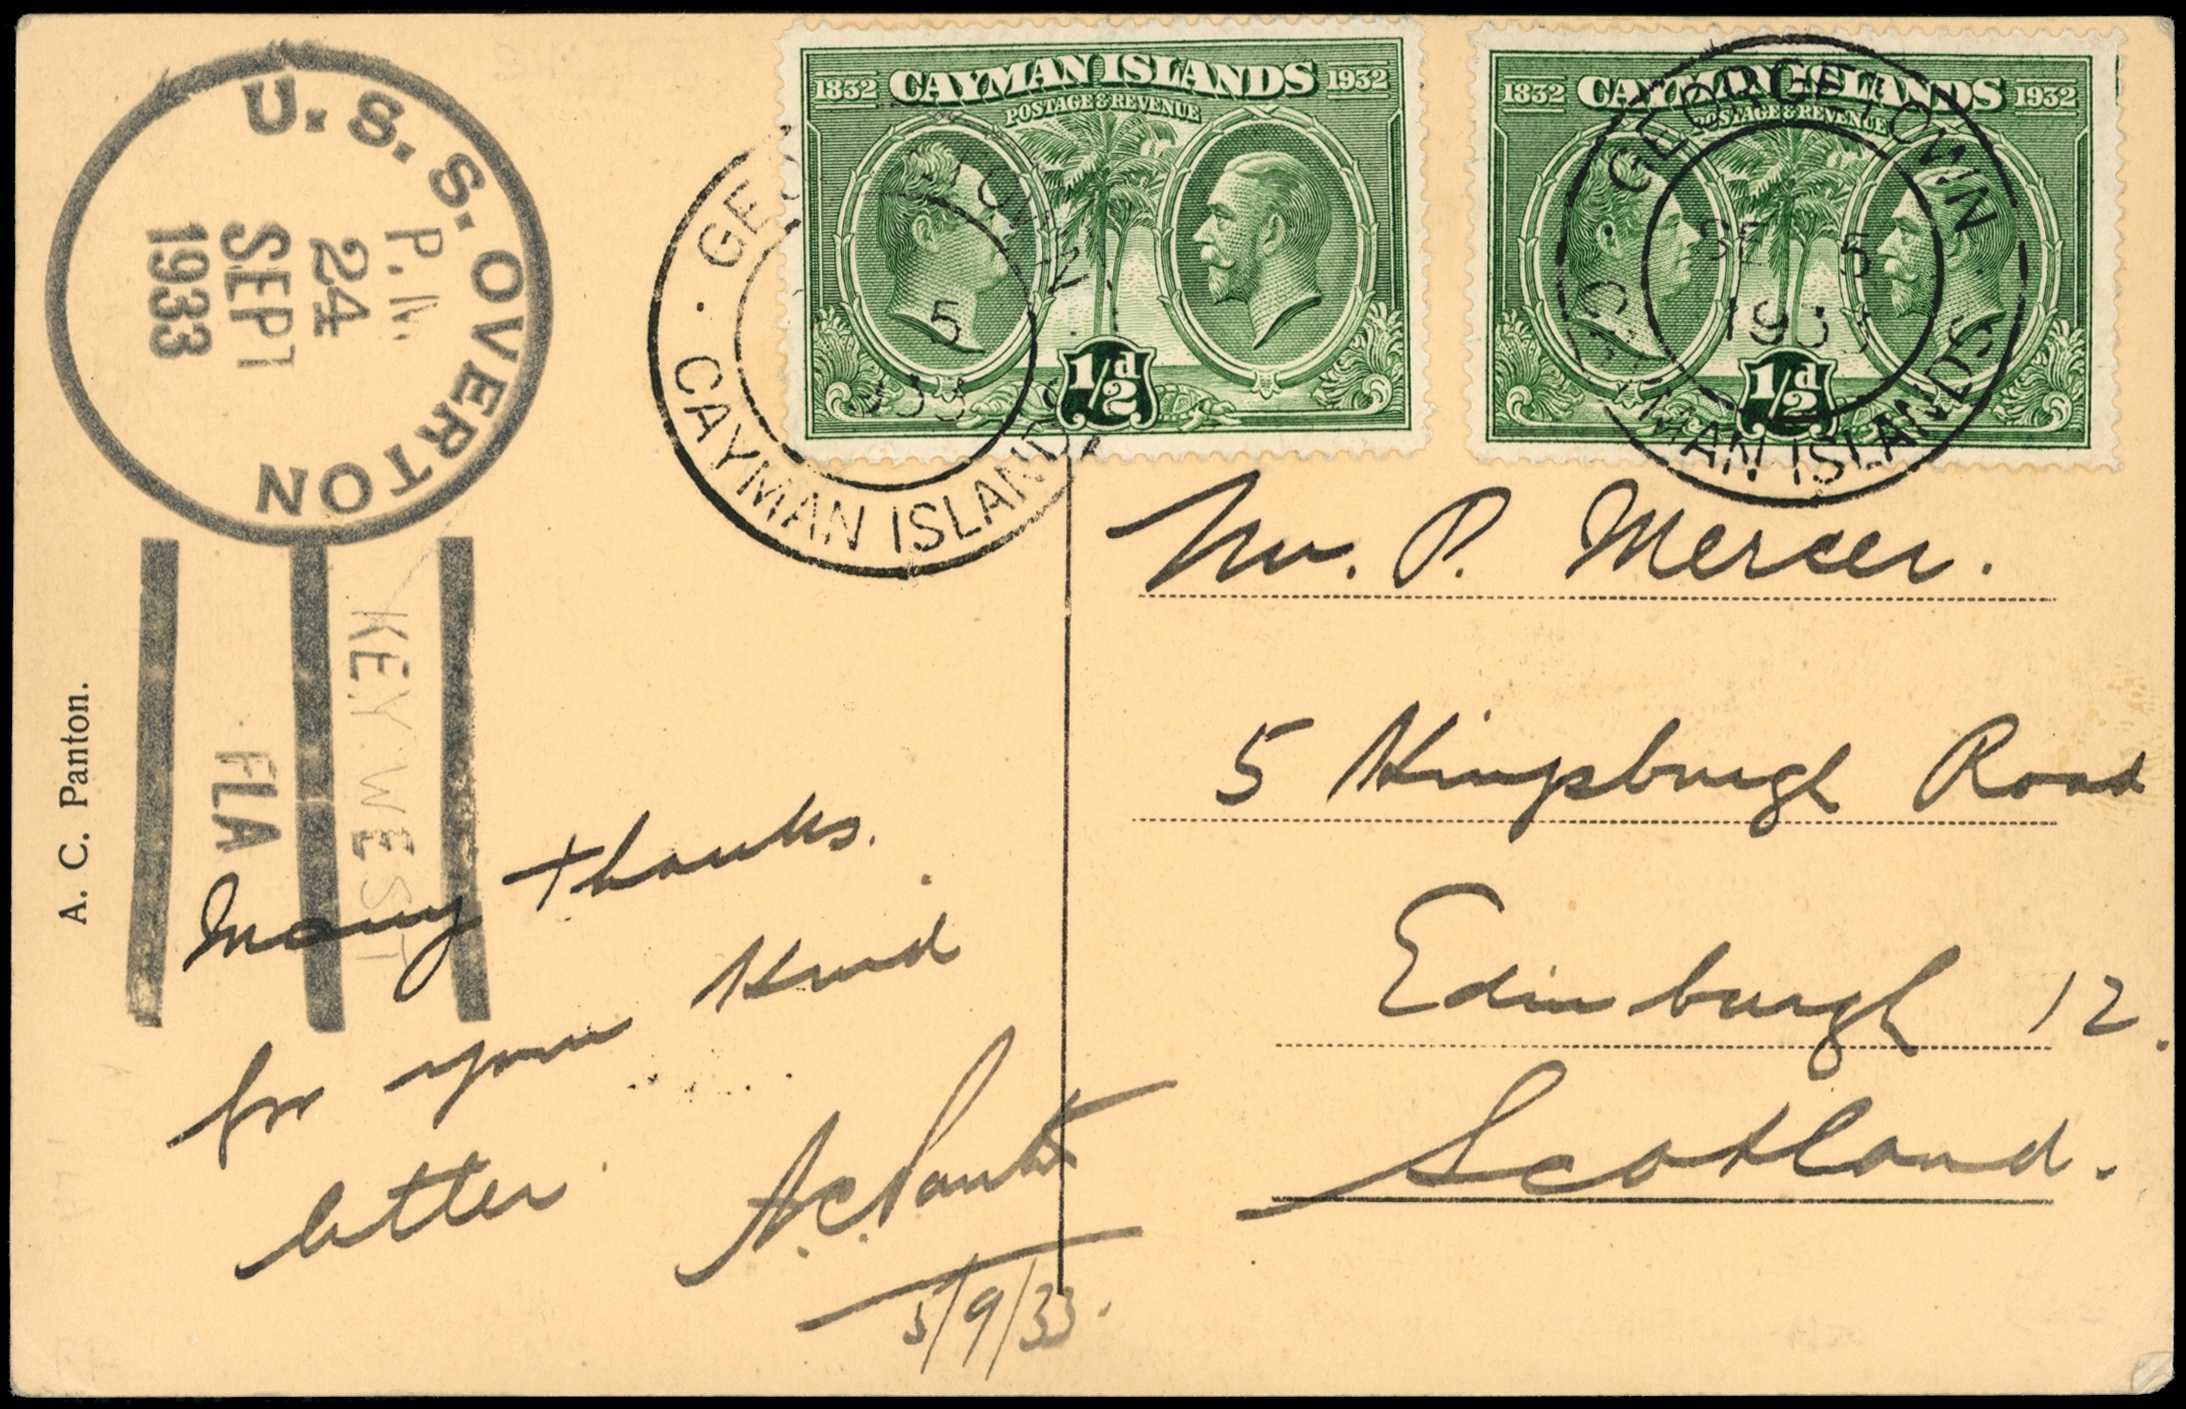 U.S.S. OVERTON
P.M.
24
SEPT
1933
KEY WEST
FLA
A. C. Panton.
1832 CAYMAN ISLANDS 1932
POSTAGE & REVENUE
1/2d
GEORGETOWN
5
1933
CAYMAN ISLANDS
1832 CAYMAN ISLANDS 1932
POSTAGE & REVENUE
1/2d
GEORGETOWN
SE 5
1933
CAYMAN ISLANDS
Mr. P. Mercer.
5 Kingsburgh Road
Edinburgh 12.
Scotland.
Many thanks.
for your kind
letter.
A.C.Panton
5/9/33.